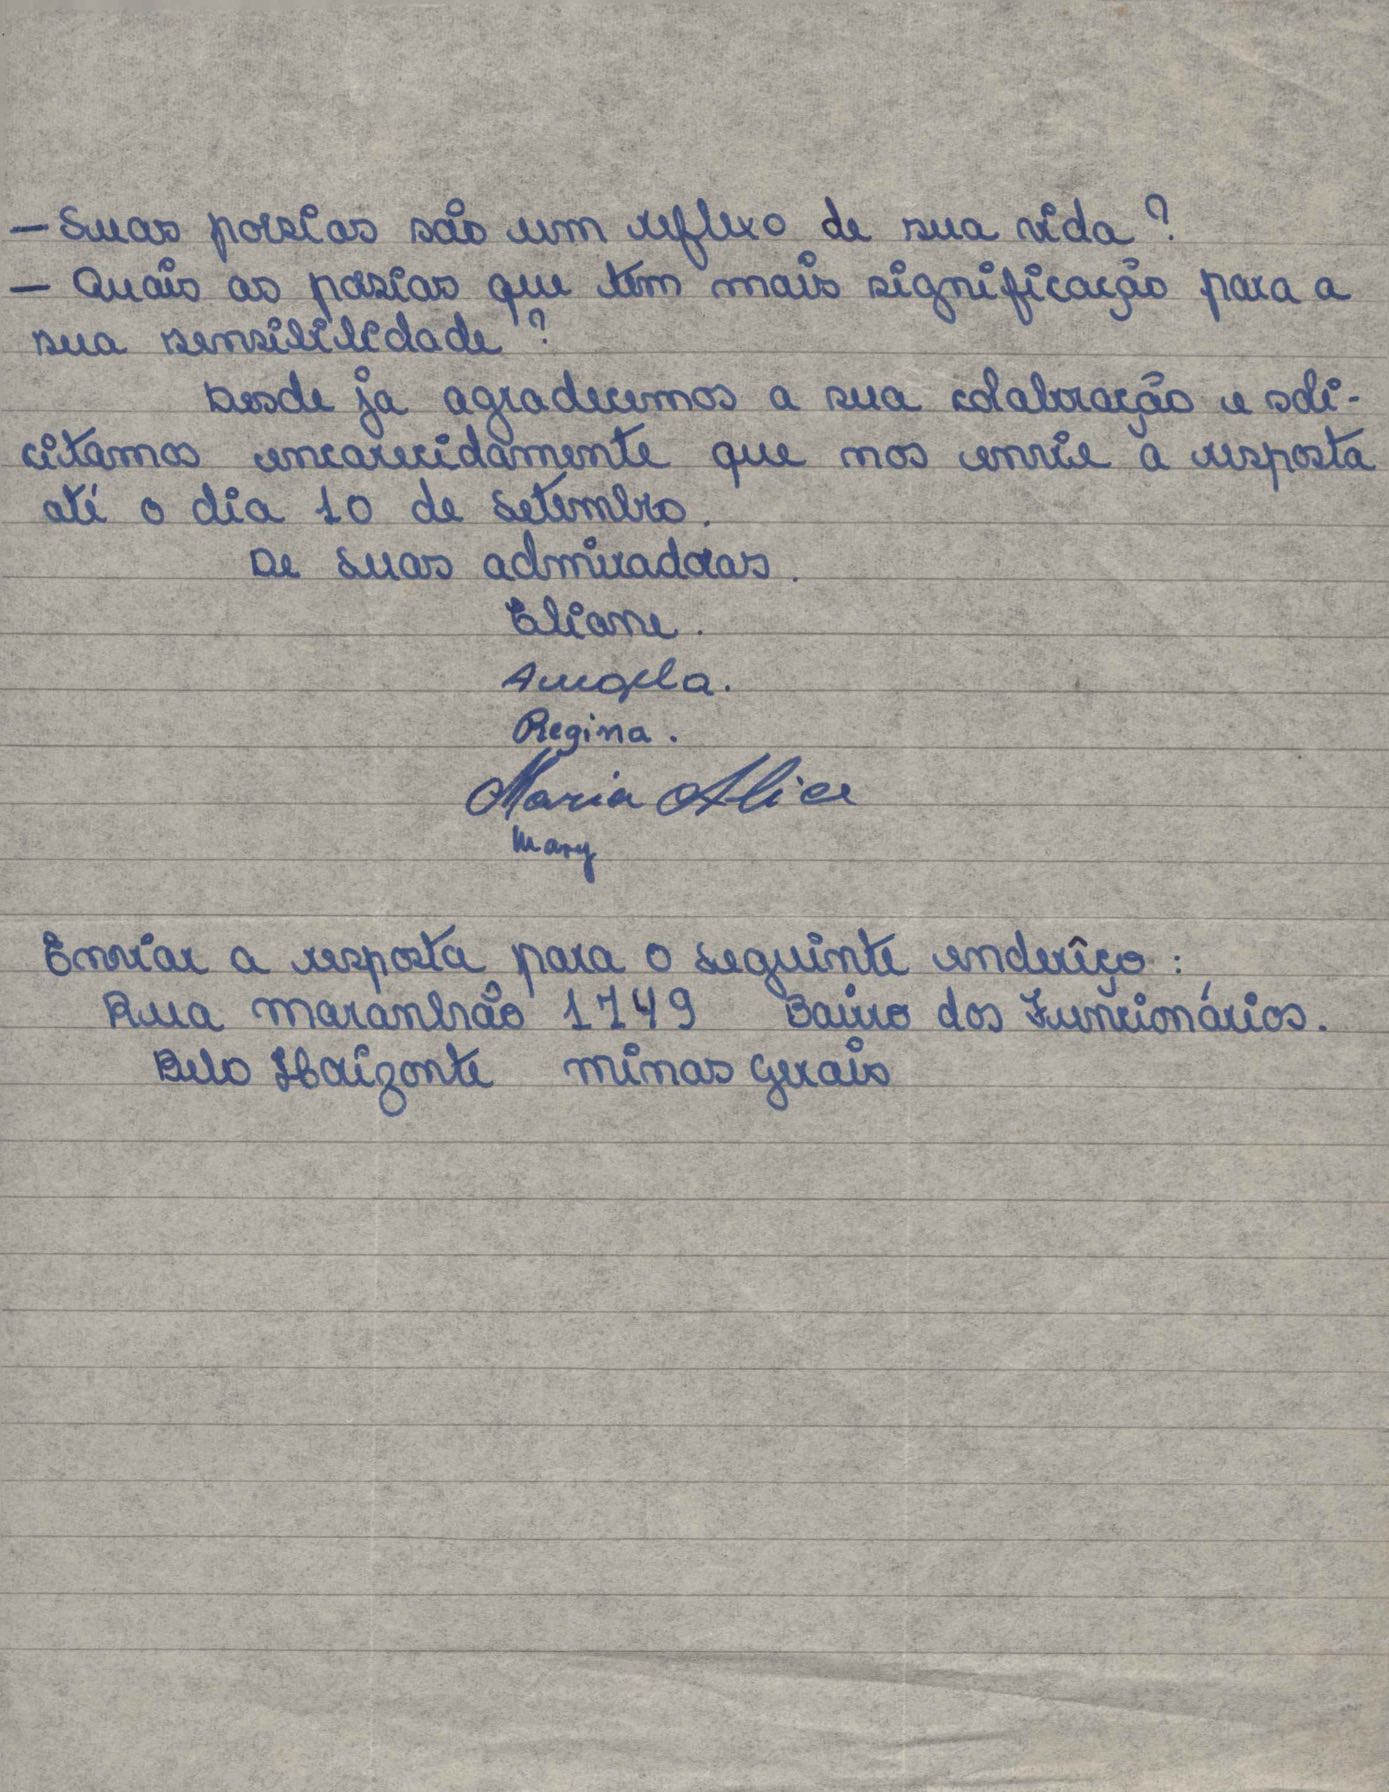 — Suas poesias são um reflexo de sua vida?
— Quais as poesias que tem mais significação para a
sua sensibilidade?
Desde ja agradecemos a sua colaboração e soli-
citamos encarecidamente que nos envie a resposta
até o dia 10 de Setembro.
De suas admiradoras.
Eliane.
Angela.
Regina.
Maria Alice
Mary
Enviar a resposta para o seguinte enderêço:
Rua Maranhão 1749 Bairro dos Funcionários.
Belo Horizonte Minas Gerais